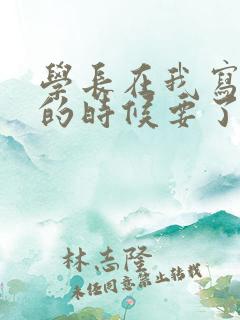 學長在我寫
的時候要了
林志隆
未任同意禁止轉載